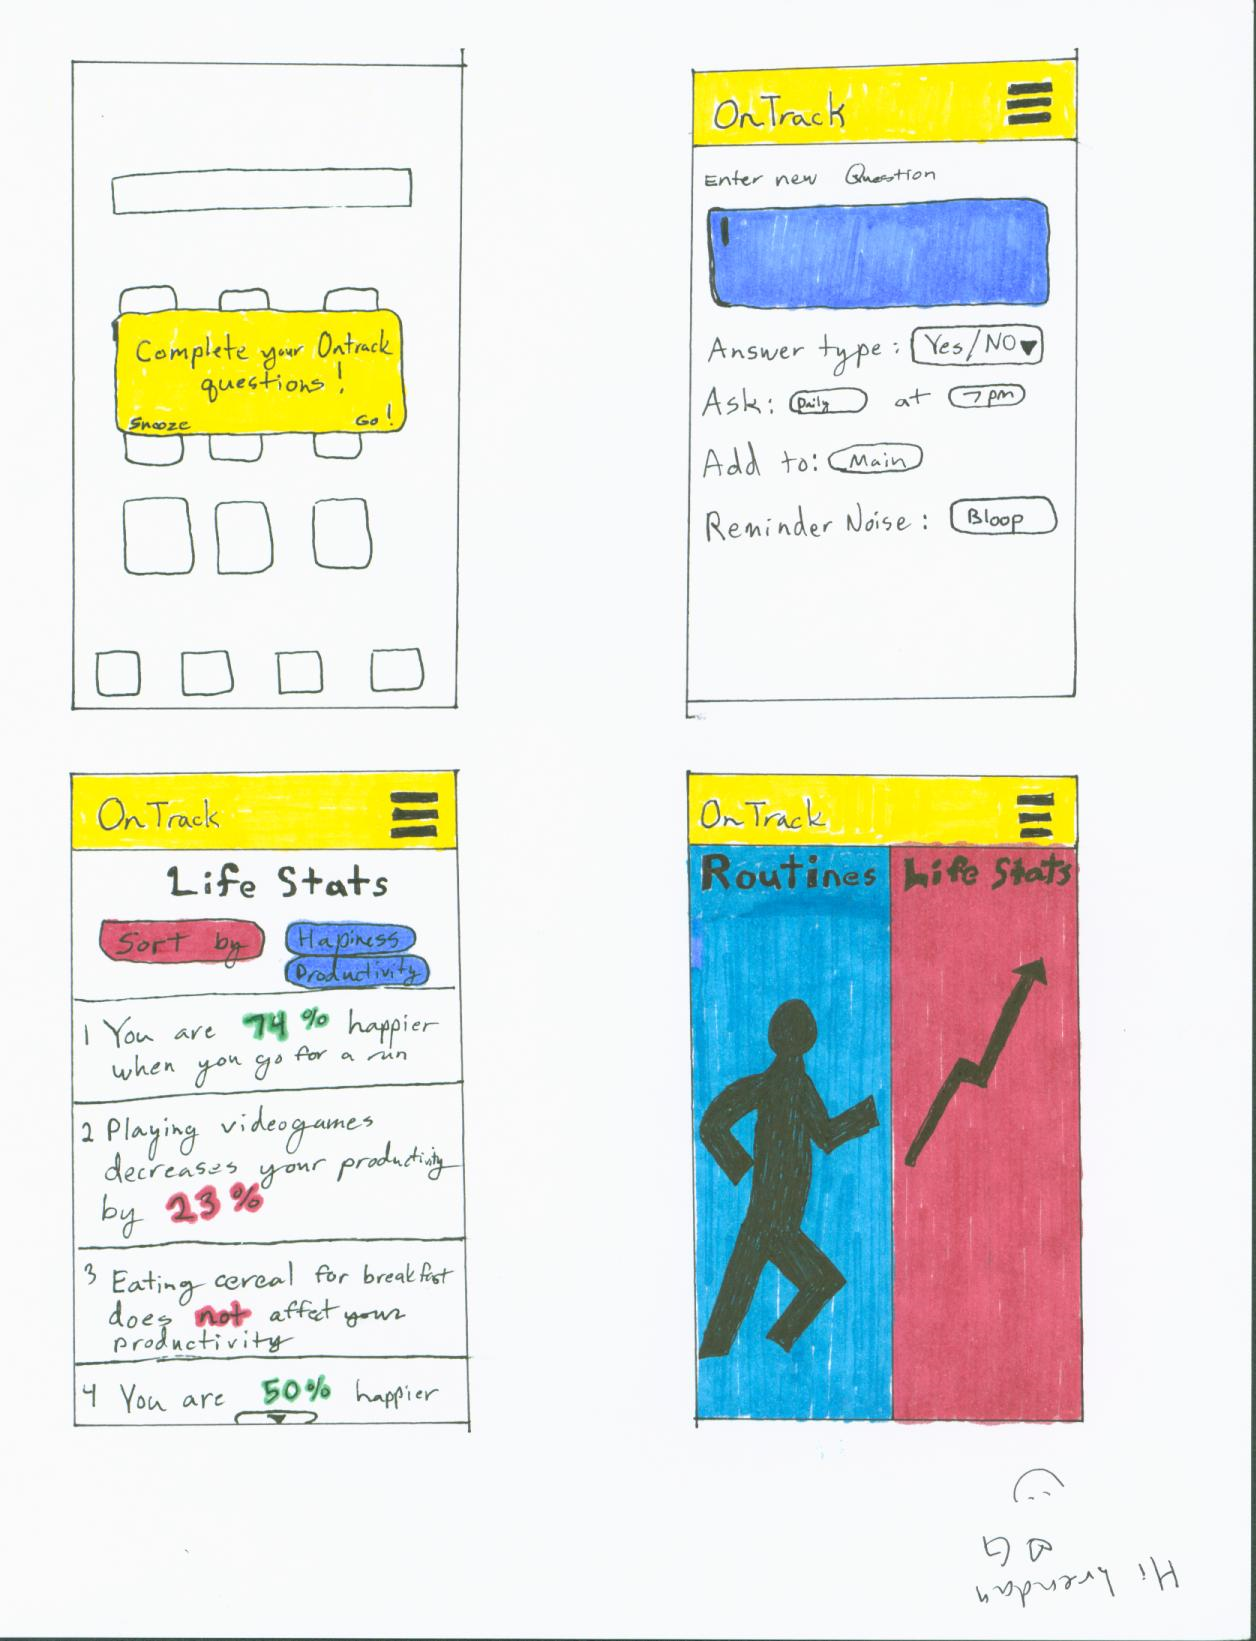 Complete your Ontrack
questions!
Snooze Go!
OnTrack
Enter new Question
Answer type: Yes/NO
Ask: Daily at 7pm
Add to: Main
Reminder Noise: Bloop
OnTrack
Life Stats
Sort by
Hapiness
Productivity
1 You are 74% happier
when you go for a run
2 Playing videogames
decreases your productivity
by 23%
3 Eating cereal for breakfast
does not affect your
productivity
4 You are 50% happier
OnTrack
Routines Life Stats
Hi brendan